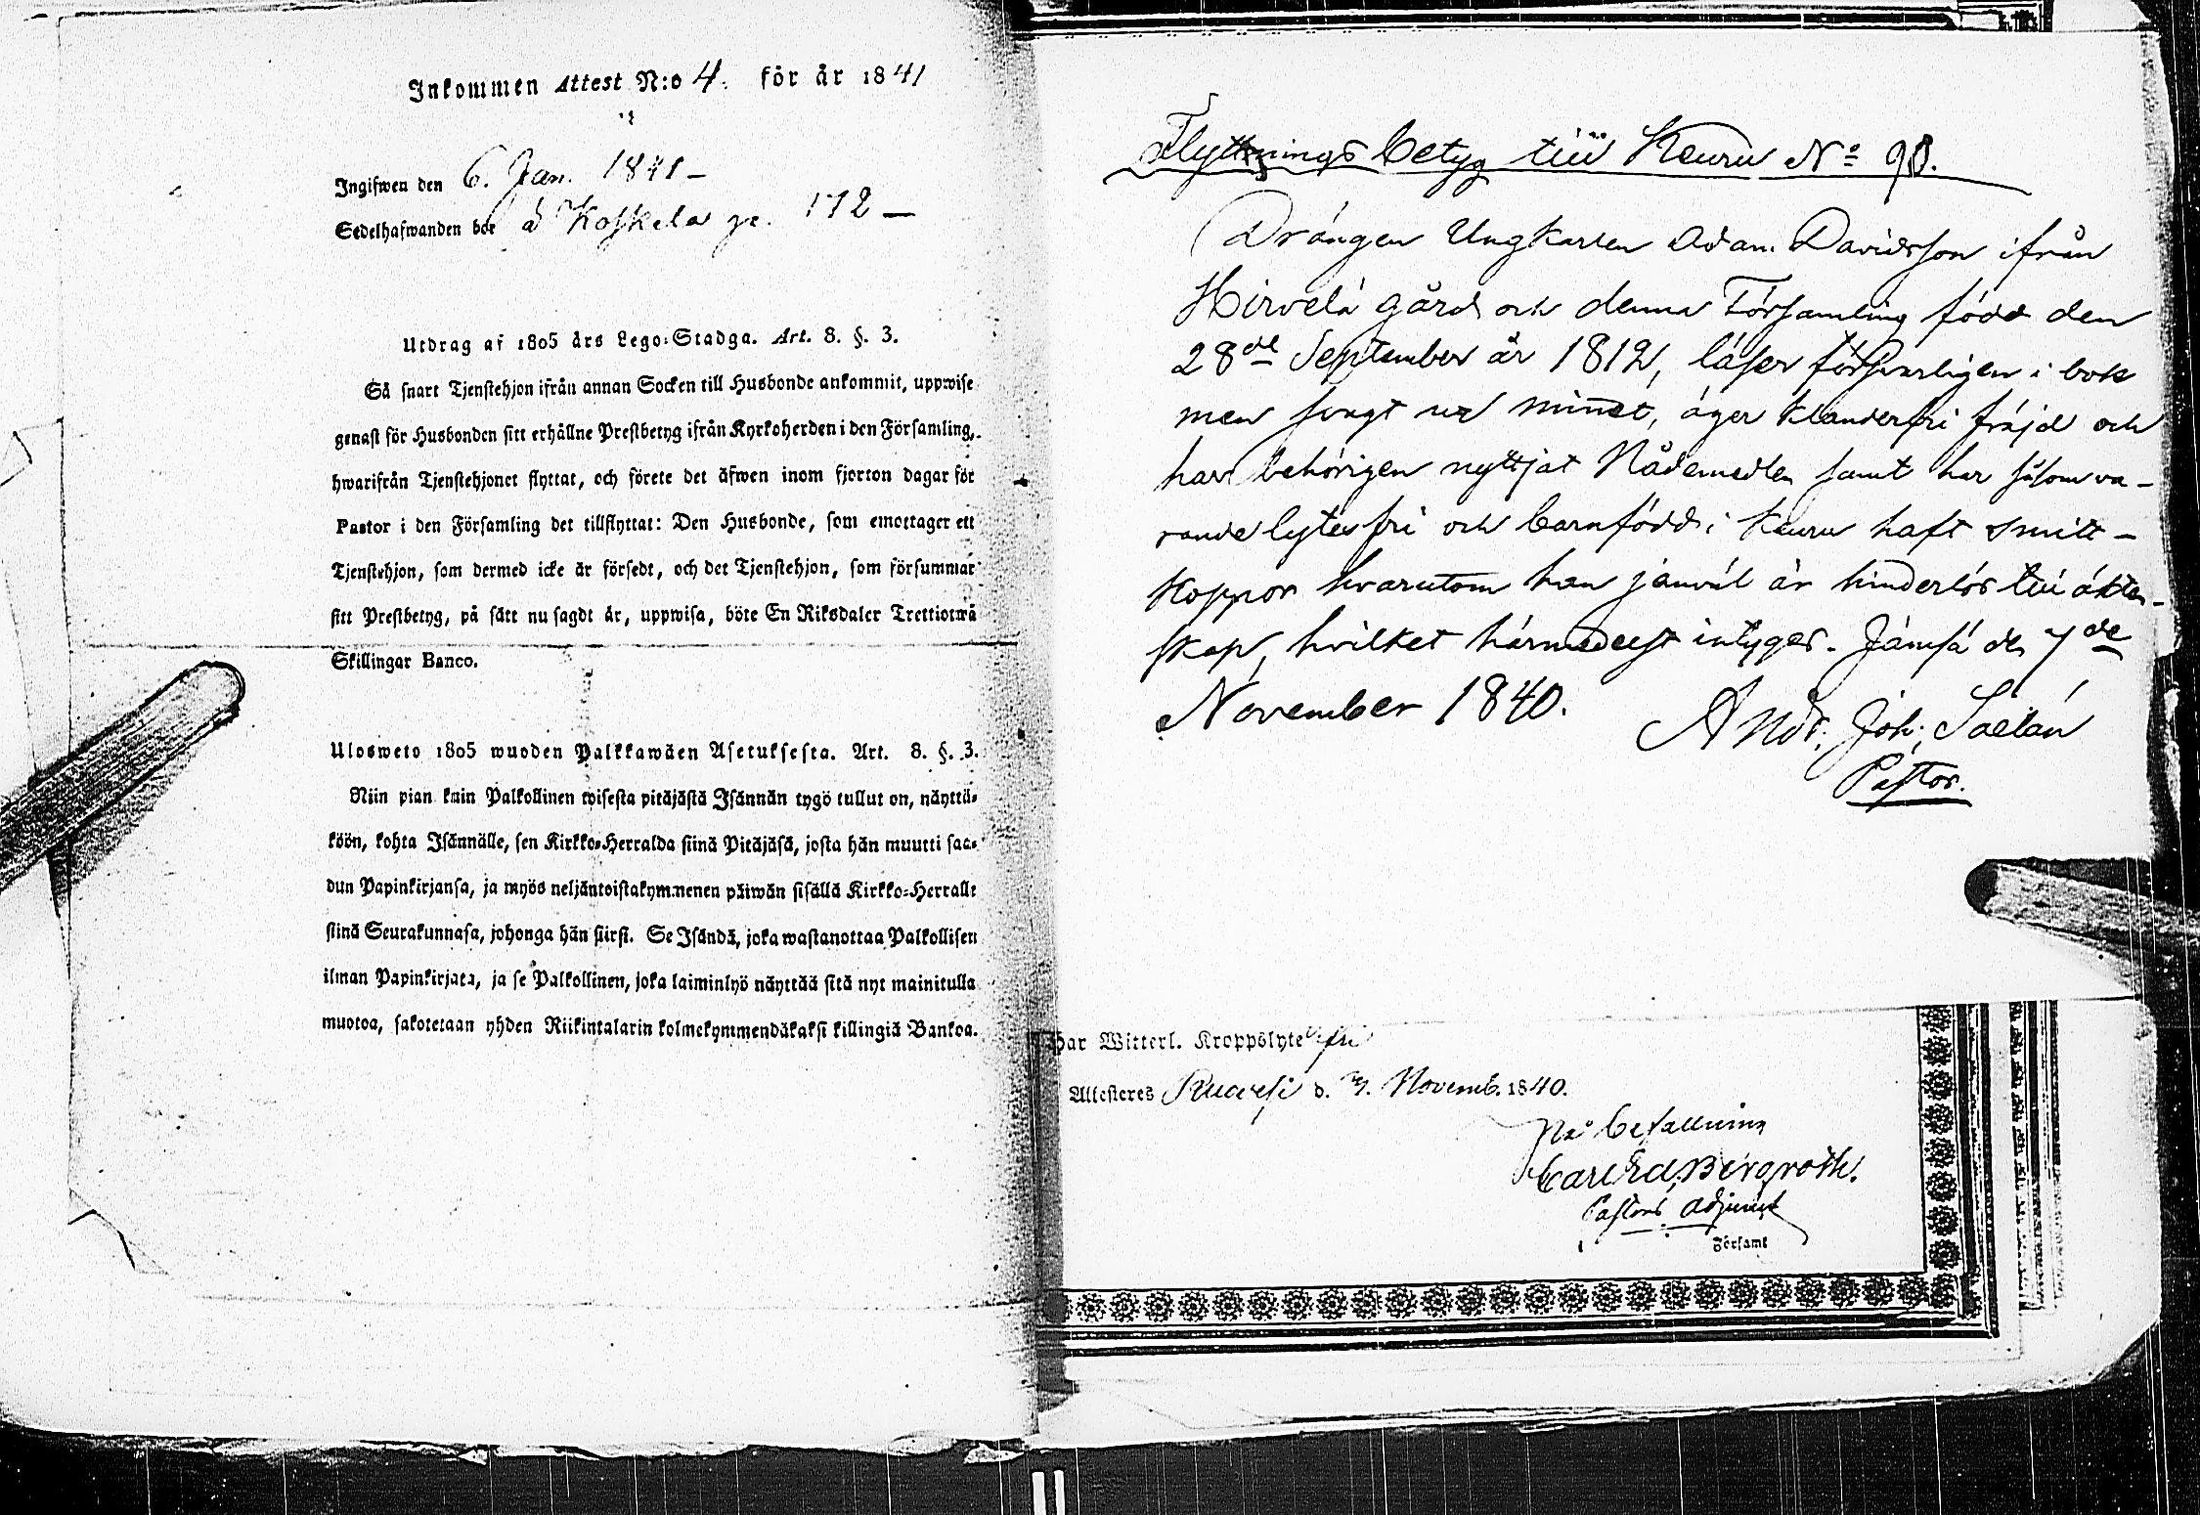 Inkommen Attest N:o 4. för år 1841
Ingifwen den 6. Jan. 1841 –
Sedelhafwanden bor å Koskela 172 –
Utdrag af 1805 års Lego-Stadga. Art. 8. §. 3.
Så snart Tjenstehjon ifrån annan Socken till Husbonde ankommit, uppwise
genast för Husbonden sitt erhållne Prestbetyg ifrån Kyrkoherden i den Församling,
hwarifrån Tjenstehjonet flyttat, och förete det äfwen inom fjorton dagar för
Pastor i den Församling det tillflyttat: Den Husbonde, som emottager ett
Tjenstehjon, som dermed icke är försedt, och det Tjenstehjon, som försummar
sitt Prestbetyg, på sätt nu sagdt är, uppwisa, böte En Riksdaler Trettiotwå
Skillingar Banco.
Ulosweto 1805 wuoden Palkkawäen Asetuksesta. Art. 8. §. 3.
Niin pian kuin Palkollinen wisesta pitäjästä Isännän tygö tullut on, näyttä-
köön, kohta Isännälle, sen Kirkko-Herralda siinä Pitäjäsä, josta hän muutti saa-
dun Papinkirjansa, ja myös neljäntoistakymmenen päiwän sisällä Kirkko-Herralle
siinä Seurakunnasa, johonga hän siirsi. Se Isändä, joka wastanottaa Palkollisen
ilman Papinkirjata, ja se Palkollinen, joka laiminlyö näyttää sitä nyt mainitulla
muotoa, sakotetaan yhden Riikintalarin kolmekymmendäkaksi killingiä Bankoa.
Flyttnings betyg till Keuru No 90.
Drängen Ungkarlen Adam Davidsson ifrån
Hirvelä gård och denna Församling född den
28de September år 1812, läser försvarligen i bok
men svagt ur minnet, äger klanderfri fräjd och
har behörigen nyttjat Nådemedlen samt har såsom va-
rande lytesfri och barnfödd i Keuru haft smitt-
koppor hvarutom han jämväl är hinderlös till äkten-
skap, hvilket härmedelst intygas. Jämsä den 7de
November 1840.
And. Joh. Saelan
Pastor.
Har Witterl. Kroppslyte fri
Attesteres Ruovesi d. 7. Novemb. 1840.
På befallning
Carl Ed. Bergroth.
Pastors Adjunct
Församl